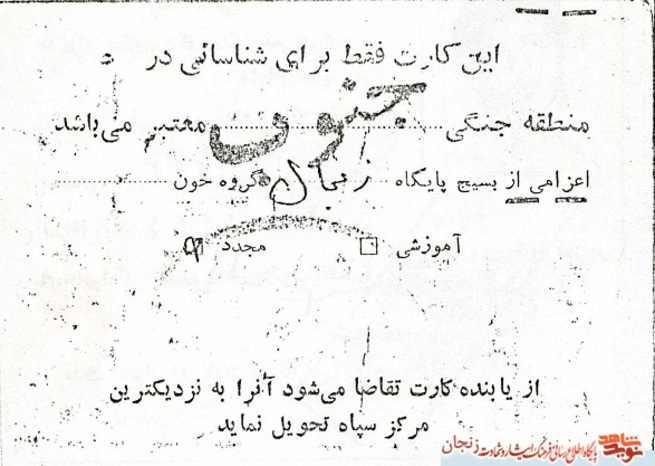 این کارت فقط برای شناسائی در
منطقه جنگی جنوب معتبر می باشد
اعزامی از بسیج پایگاه زنجان گروه خون
آموزشی مجدد
از یابنده کارت تقاضا می‌شود آنرا به نزدیکترین
مرکز سپاه تحویل نماید
نوید شاهد پایگاه اطلاع رسانی فرهنگ ایثار و شهادت زنجان